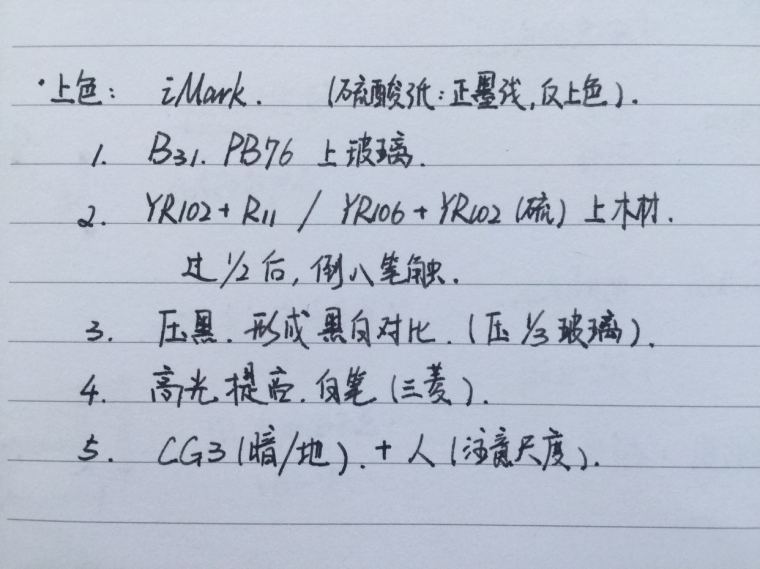 ·上色: iMark. (硫酸纸:正墨线,反上色).
1. B31. PB76 上玻璃.
2. YR102+R11 / YR106+YR102(硫)上木材.
过1/2后,倒八笔触.
3. 压黑.形成黑白对比.(压1/3玻璃).
4. 高光提亮.白笔(三菱).
5. CG3(暗/地).+人(注意尺度).